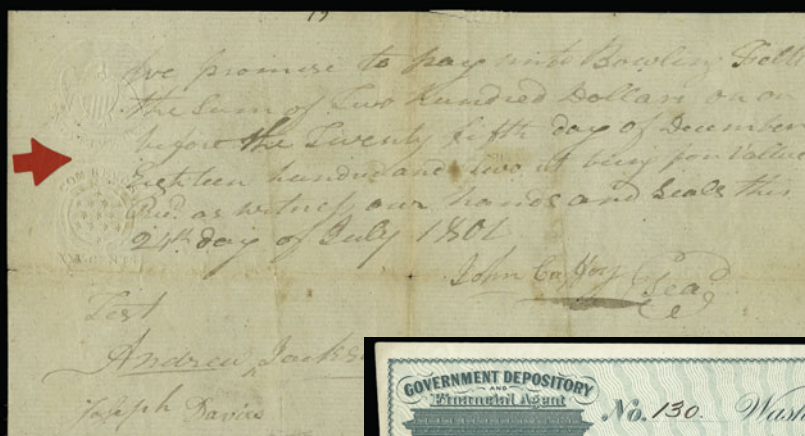 19
We promise to pay unto Bowling
the Sum of Two Hundred Dollars on or
before the Twenty fifth day of December
Eighteen hundred and two it being for Value
as witness our hands and Seals this
24th day of July 1801
John Caffery Seal
Test
Andrew Jacks
Joseph Davies
GOVERNMENT DEPOSITORY
AND
Financial Agent
No. 130. Wash